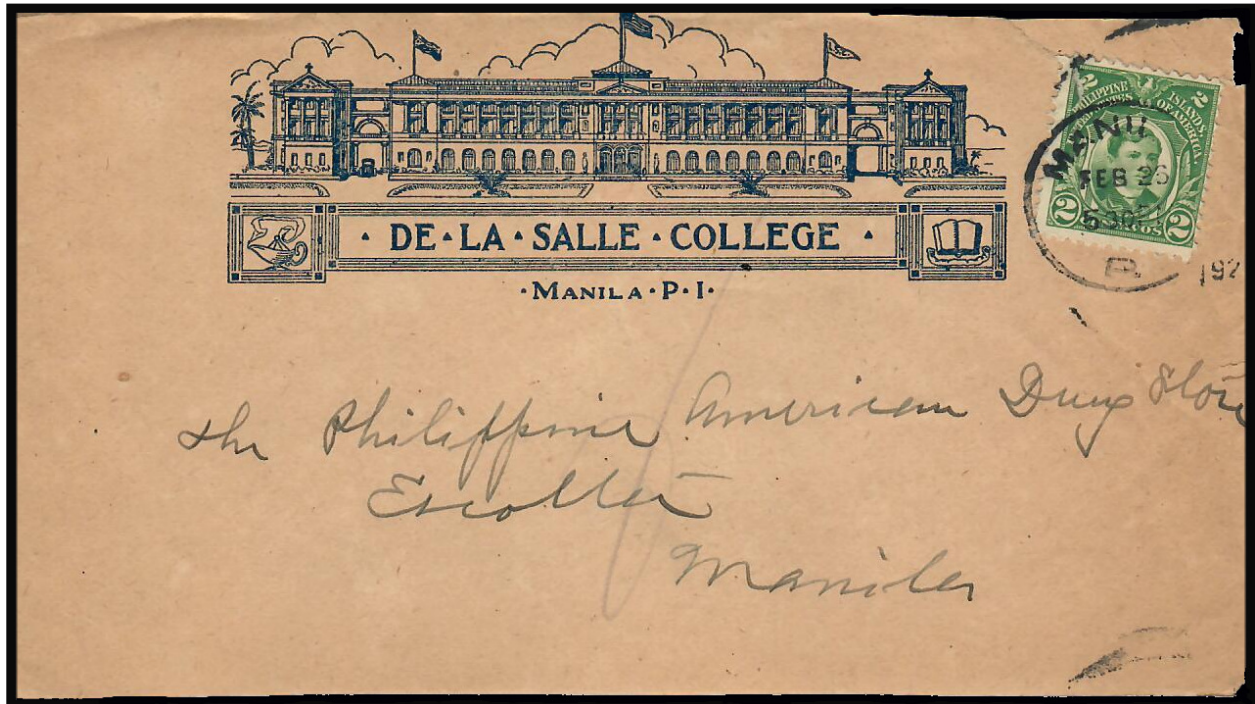 DE·LA·SALLE·COLLEGE
·MANILA·P·I·
2 PHILIPPINE ISLANDS 2
OF AMERICA
2 2
MANIL
FEB 26
P.
192
The Philippine American Drug Store
Escolta
Manila